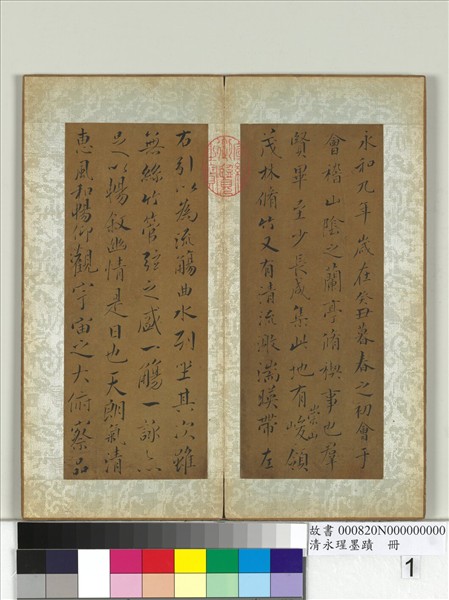 永和九年歲在癸丑暮春之初會于
會稽山陰之蘭亭脩禊事也群
賢畢至少長咸集此地有崇山峻領
茂林脩竹又有清流激湍暎帶左
右引以為流觴曲水列坐其次雖
無絲竹管弦之盛一觴一詠亦
足以暢敘幽情是日也天朗氣清
惠風和暢仰觀宇宙之大俯察品
故書 000820N000000000
清永理墨蹟 冊
1